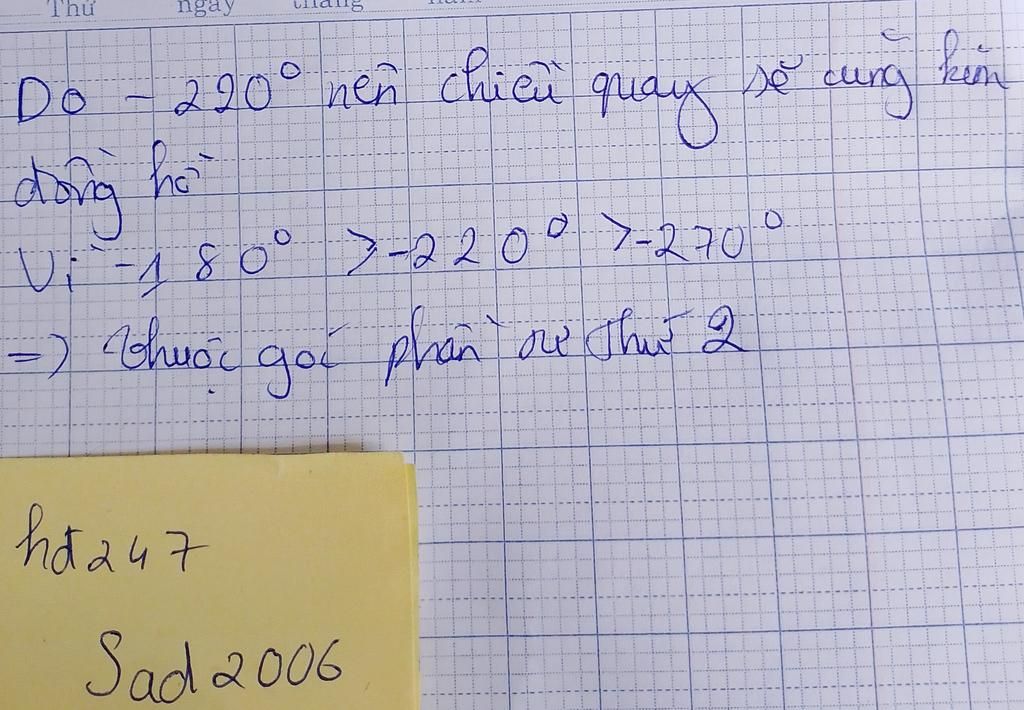 Thứ ngày tháng năm
Do - 220° nên chiều quay sẽ cùng kim
đồng hồ
Vì -180° > -220° > -270°
=> thuộc góc phần tư thứ 2
hđ247
Sad2006